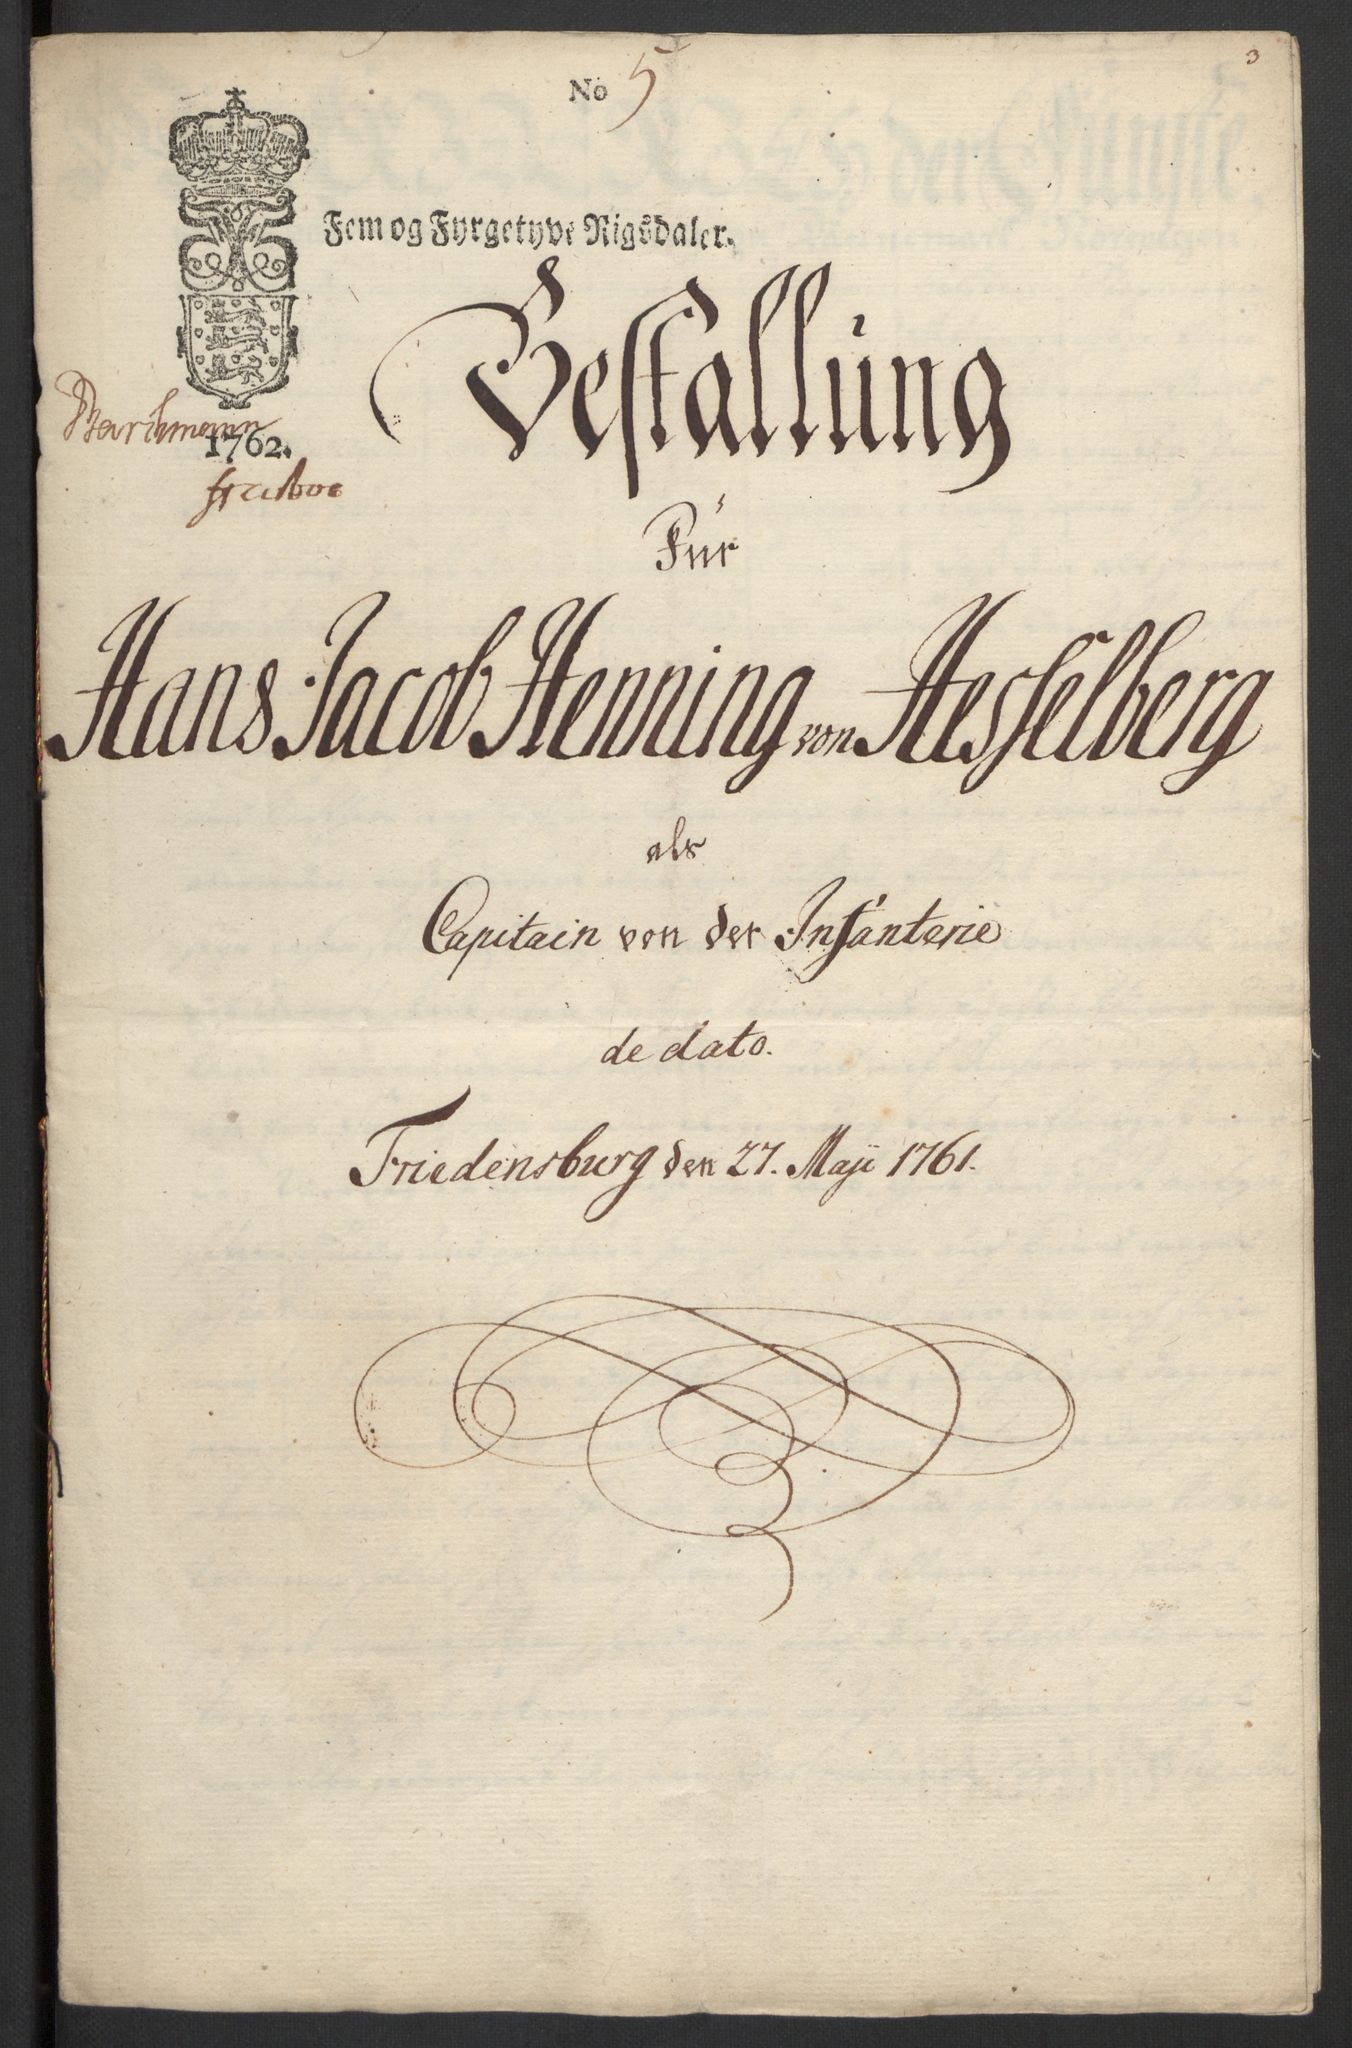 3
No 5
Fem og Fyrgetyve Rigsdaler.
Bestallung
Barthmann
1762.
Für
Hans Jacob Henning von Hesselberg
als
Capitain von der Infanterie
de dato.
Friedensburg den 27. Maji 1761.